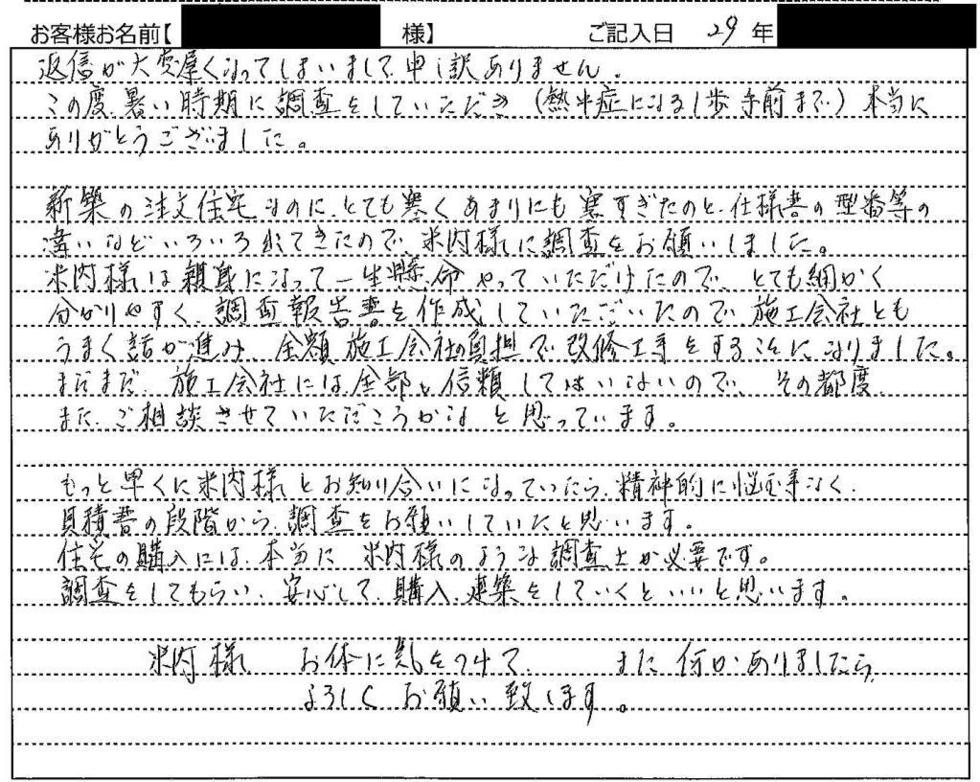 お客様お名前【 様】 ご記入日 29年
返信が大変遅くなってしまいまして申し訳ありません。
この度、暑い時期に調査をしていただき(熱中症になる1歩手前まで)本当に
ありがとうございました。
新築の注文住宅なのに、とても寒くあまりにも寒すぎたのと、仕様書の型番等の
違いなどいろいろ出てきたので、米内様に調査をお願いしました。
米内様は親身になって一生懸命やっていただけたので、とても細かく
分かりやすく、調査報告書を作成していただいたので、施工会社とも
うまく話が進み、全額施工会社の負担で改修工事をすることになりました。
まだまだ、施工会社には全部を信頼してはいないので、その都度、
また、ご相談させていただこうかな、と思っています。
もっと早くに米内様とお知り合いになっていたら、精神的に悩む事なく、
見積書の段階から、調査をお願いしていたと思います。
住宅の購入には、本当に、米内様のような調査士が必要です。
調査をしてもらい、安心して、購入、建築をしていくといいと思います。
米内様 お体に気をつけて、 また何かありましたら、
よろしくお願い致します。